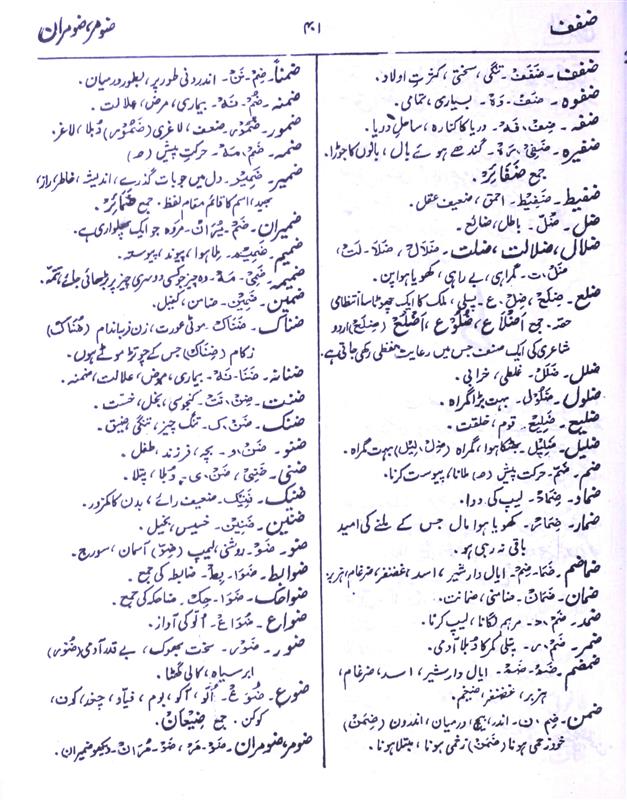 ضفف
۴۰۱
ضومر، ضومران
ضفف۔ ضَفَفْ۔ تنگی، سختی، کثرتِ اولاد۔
ضفوہ۔ ضَفْ۔ وَہْ۔ بسیاری، تمامی۔
ضفہ۔ ضِفْ۔ فَہْ۔ دریا کا کنارہ، ساحلِ دریا۔
ضفیرہ۔ ضَفِیْ۔ رَہْ۔ گندھے ہوئے بال، بالوں کا جوڑا۔
جمع ضَفَائِرْ۔
ضفیط۔ ضَفِیْطْ۔ احمق، ضعیف عقل۔
ضل۔ ضَلّ۔ باطل، ضائع۔
ضلال، ضلالت، ضلت۔ ضَلَالْ، ضَلَا۔ لَتْ،
ضَلْ۔ ت۔ گمراہی، بے راہی، کھویا ہوا پن۔
ضلع۔ ضِلَعْ، ضِلْ۔ ع۔ پسلی، ملک کا ایک چھوٹا سا انتظامی
حصہ۔ جمع اَضْلَاع، ضُلُوْع، اَضْلُعْ (ضِلَعْ) اردو
شاعری کی ایک صنعت جس میں رعایت لفظی رکھی جاتی ہے۔
ضلل۔ ضَلَلْ۔ غلطی، خرابی۔
ضلول۔ ضَلُوْلْ۔ بہت بڑا گمراہ۔
ضلیع۔ ضَلِیْعْ۔ قوم، خلقت۔
ضلیل۔ ضَلِیْلْ۔ بھٹکا ہوا، گمراہ (ضِلّ۔ لِیْلْ) بہت گمراہ۔
ضم۔ ضَمّ۔ حرکت پیش (ـُ) ملانا، پیوست کرنا۔
ضماد۔ ضِمَادْ۔ لیپ کی دوا۔
ضمار۔ ضِمَارْ۔ کھویا ہوا مال جس کے ملنے کی امید
باقی نہ رہی ہو۔
ضماضم۔ ضَمَا۔ ضِمْ۔ ایال دار شیر، اسد، غضنفر، ضرغام، ہزبر
ضمان۔ ضَمَانْ۔ ضامنی، ضمانت۔
ضمد۔ ضَمْ۔ د۔ مرہم لگانا، لیپ کرنا۔
ضمر۔ ضَمْ۔ ر۔ پتلی کمر کا دُبلا آدمی۔
ضمضم۔ ضَمْ۔ ضَمْ۔ ایال دار شیر، اسد، ضرغام،
ہزبر، غضنفر، ضیغم۔
ضمن۔ ضِمْ۔ ن۔ اندر، بیچ، درمیان، اندرون (ضَمِنْ)
خود زخمی ہونا (ضَمَنْ) زخمی ہونا، مبتلا ہونا۔
ضمناً۔ ضِمْ۔ نَنْ۔ اندرونی طور پر، بطور درمیان۔
ضمنہ۔ ضُمْ۔ نَہْ۔ بیماری، مرض، علالت۔
ضمور۔ ضُمُوْرْ۔ ضعف، لاغری (ضَمُوْرْ) دُبلا، لاغر۔
ضمہ۔ ضَمْ۔ مَہْ۔ حرکتِ پیش (ـُ)
ضمیر۔ ضَمِیْرْ۔ دل میں جو بات گذرے، اندیشہ، خاطر، راز،
بھید، اسم کا قائم مقام لفظ۔ جمع ضَمَائِرْ۔
ضمیران۔ ضَمْ۔ یُرَانْ۔ مَرْوَہ جو ایک پھلواری ہے۔
ضمیم۔ ضَمِیْمْ۔ ملا ہوا، پیوند، پیوستہ۔
ضمیمہ۔ ضَمِیْ۔ مَہْ۔ وہ چیز جو کسی دوسری چیز پر بڑھائی جائے، تتمّہ۔
ضمین۔ ضَمِیْنْ۔ ضامن، کفیل۔
ضناک۔ ضَنَاکْ۔ موٹی عورت، زن زبان دام (ضُنَاکْ)
زکام (ضِنَاکْ) جس کے چوتڑ موٹے ہوں۔
ضنانہ۔ ضَنَا۔ نَہْ۔ بیماری، مرض، علالت، ضمنہ۔
ضنت۔ ضِنْ۔ نَتْ۔ کنجوسی، بخل، خسّت۔
ضنک۔ ضَنْ۔ ک۔ تنگ چیز، تنگی، ضیق۔
ضنو۔ ضَنْ۔ و۔ بچہ، فرزند، طفل۔
ضنی۔ ضَنٰی، ضَنْ۔ ی۔ دُبلا، پتلا۔
ضنیک۔ ضَنِیْکْ۔ ضعیف رائے، بدن کا کمزور۔
ضنین۔ ضَنِیْنْ۔ خسیس، بخیل۔
ضو۔ ضَوْ۔ روشنی، لیمپ آسمان، سورج۔
ضوابط۔ ضَوَا۔ بِطْ۔ ضابطہ کی جمع۔
ضواحک۔ ضَوَا۔ حِکْ۔ ضاحک کی جمع۔
ضواع۔ ضُوَاعْ۔ اُلو کی آواز۔
ضور۔ ضَوْ۔ ر۔ سخت بھوک، بے قدر آدمی (ضُوْر)
ابر سیاہ، کالی گھٹا۔
ضوع۔ ضُوْ۔ عْ۔ اُلو، اُکو، بوم، چغد، کون،
کوکن۔ جمع ضِیْعَانْ۔
ضومر، ضومران۔ ضَوْ۔ مَرْ، ضَوْ۔ مُرَانْ۔ دیکھو ضمیران۔